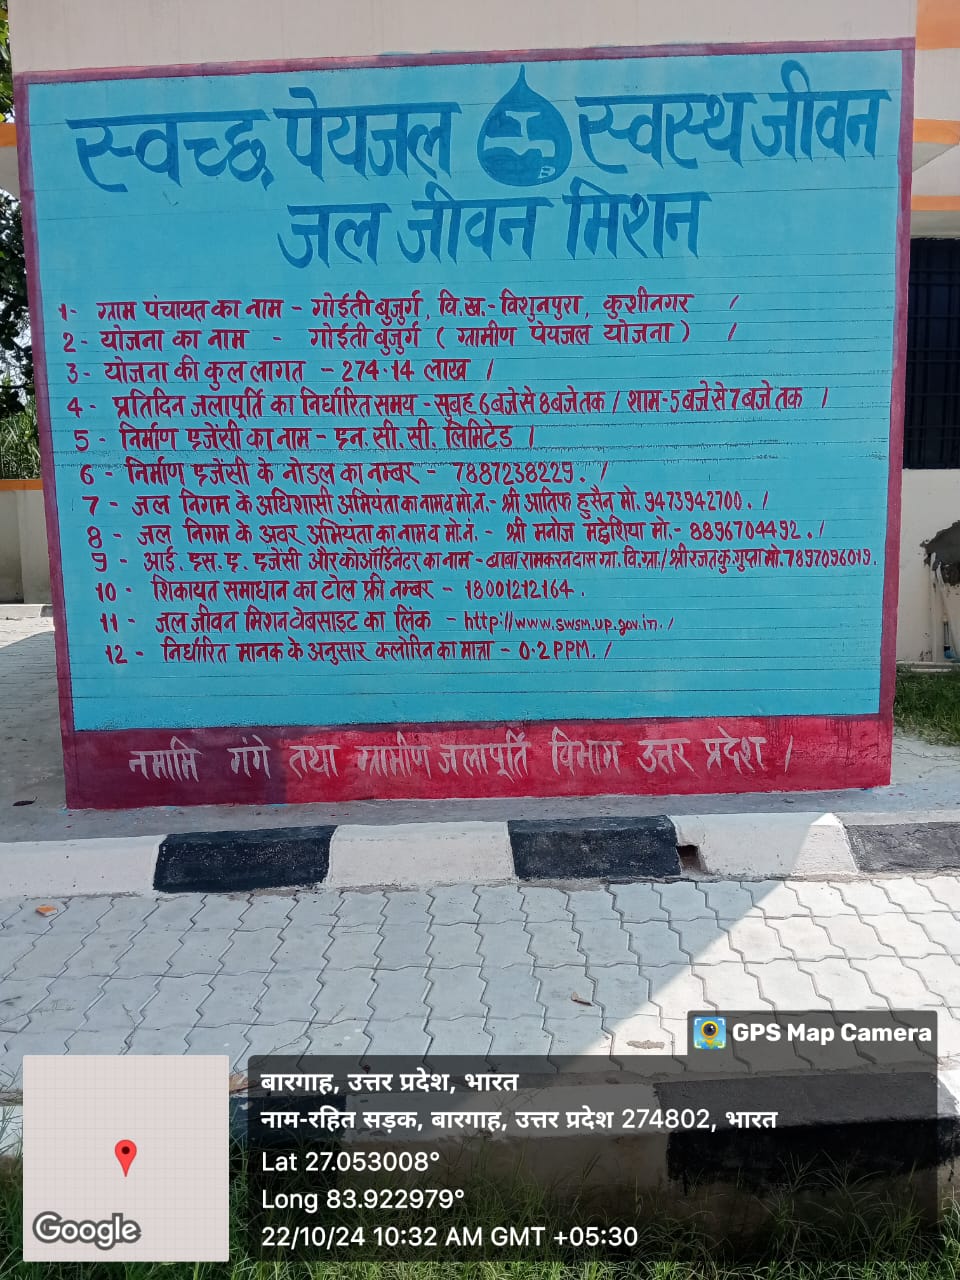 स्वच्छ पेयजल स्वस्थ जीवन
जल जीवन मिशन
1- ग्राम पंचायत का नाम - गोईती बुजुर्ग, वि.ख.- विशुनपुरा, कुशीनगर /
2- योजना का नाम - गोईती बुजुर्ग ( ग्रामीण पेयजल योजना ) /
3- योजना की कुल लागत - 274.14 लाख /
4- प्रतिदिन जलापूर्ति का निर्धारित समय - सुबह 6 बजे से 8 बजे तक / शाम-5 बजे से 7 बजे तक /
5- निर्माण एजेंसी का नाम - एन. सी. सी. लिमिटेड /
6- निर्माण एजेंसी के नोडल का नम्बर - 7887238229. /
7- जल निगम के अधिशासी अभियंता का नाम व मो.न.- श्री आतिफ हुसैन मो. 9473942700. /
8- जल निगम के अवर अभियंता का नाम व मो.नं. - श्री मनोज मद्देशिया मो.- 8896704492. /
9- आई. एस. ए. एजेंसी और कोऑर्डिनेटर का नाम - बाबा रामकरन दास ग्रा. वि. ग्रा./ श्री रजत कु. गुप्ता मो. 7897096019.
10- शिकायत समाधान का टोल फ्री नम्बर - 18001212164.
11- जल जीवन मिशन वेबसाइट का लिंक - http://www.swsm.up.gov.in. /
12- निर्धारित मानक के अनुसार क्लोरिन का मात्रा - 0.2 PPM. /
नमामि गंगे तथा ग्रामीण जलापूर्ति विभाग उत्तर प्रदेश /
GPS Map Camera
बारगाह, उत्तर प्रदेश, भारत
नाम-रहित सड़क, बारगाह, उत्तर प्रदेश 274802, भारत
Lat 27.053008°
Long 83.922979°
22/10/24 10:32 AM GMT +05:30
Google